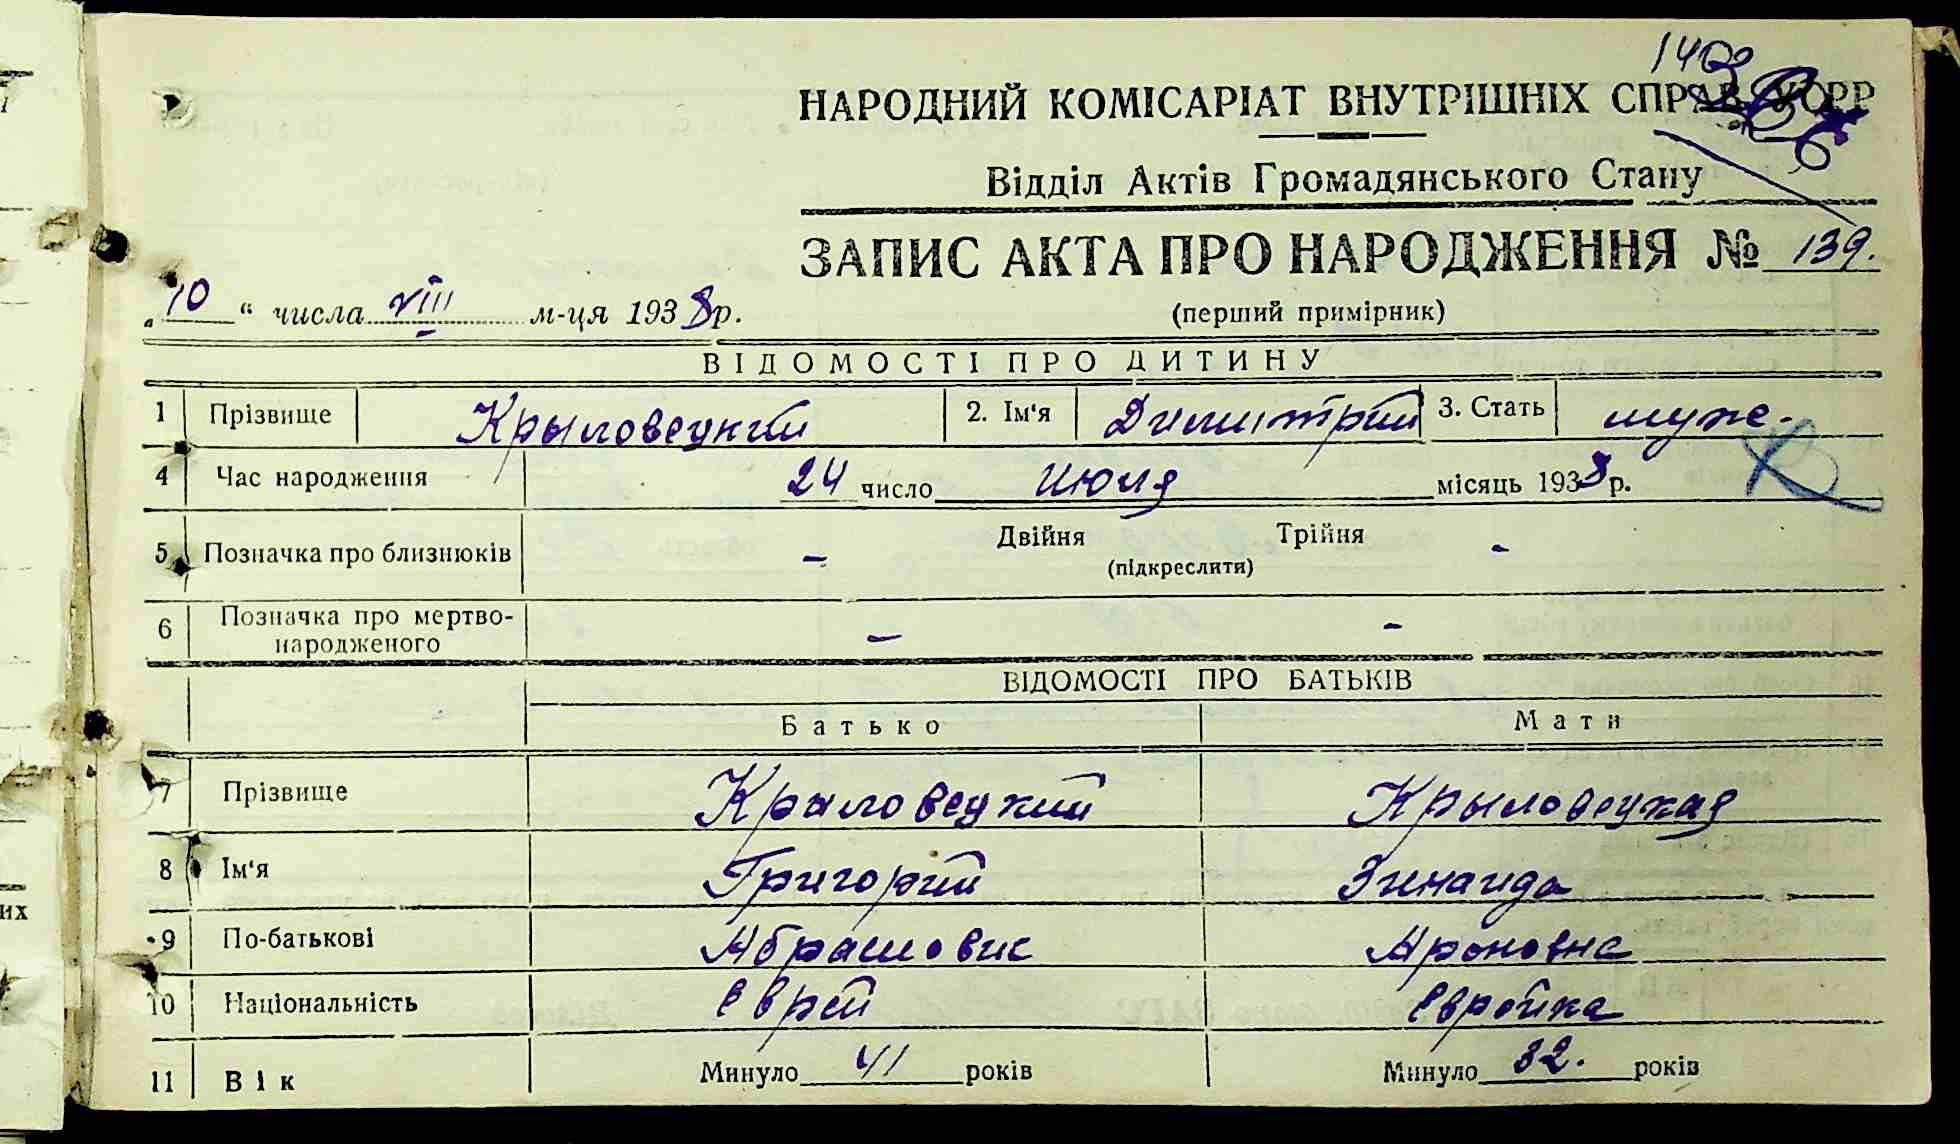 НАРОДНИЙ КОМІСАРІАТ ВНУТРІШНІХ СПРАВ УСРР
Відділ Актів Громадянського Стану
ЗАПИС АКТА ПРО НАРОДЖЕННЯ № 139.
„10“ числа VIII м-ця 1938 р.
(перший примірник)
ВІДОМОСТІ ПРО ДИТИНУ
1 Прізвище Крыловецкий 2. Ім'я Димитрий 3. Стать муж.
4 Час народження 24 число июля місяць 1938 р.
5 Позначка про близнюків - Двійня Трійня -
(підкреслити)
6 Позначка про мертво-
народженого - -
ВІДОМОСТІ ПРО БАТЬКІВ
Батько Мати
7 Прізвище Крыловецкий Крыловецкая
8 Ім'я Григорий Зинаида
9 По-батькові Абрамович Ароновна
10 Національність еврей еврейка
11 Вік Минуло 41 років Минуло 32. років
их